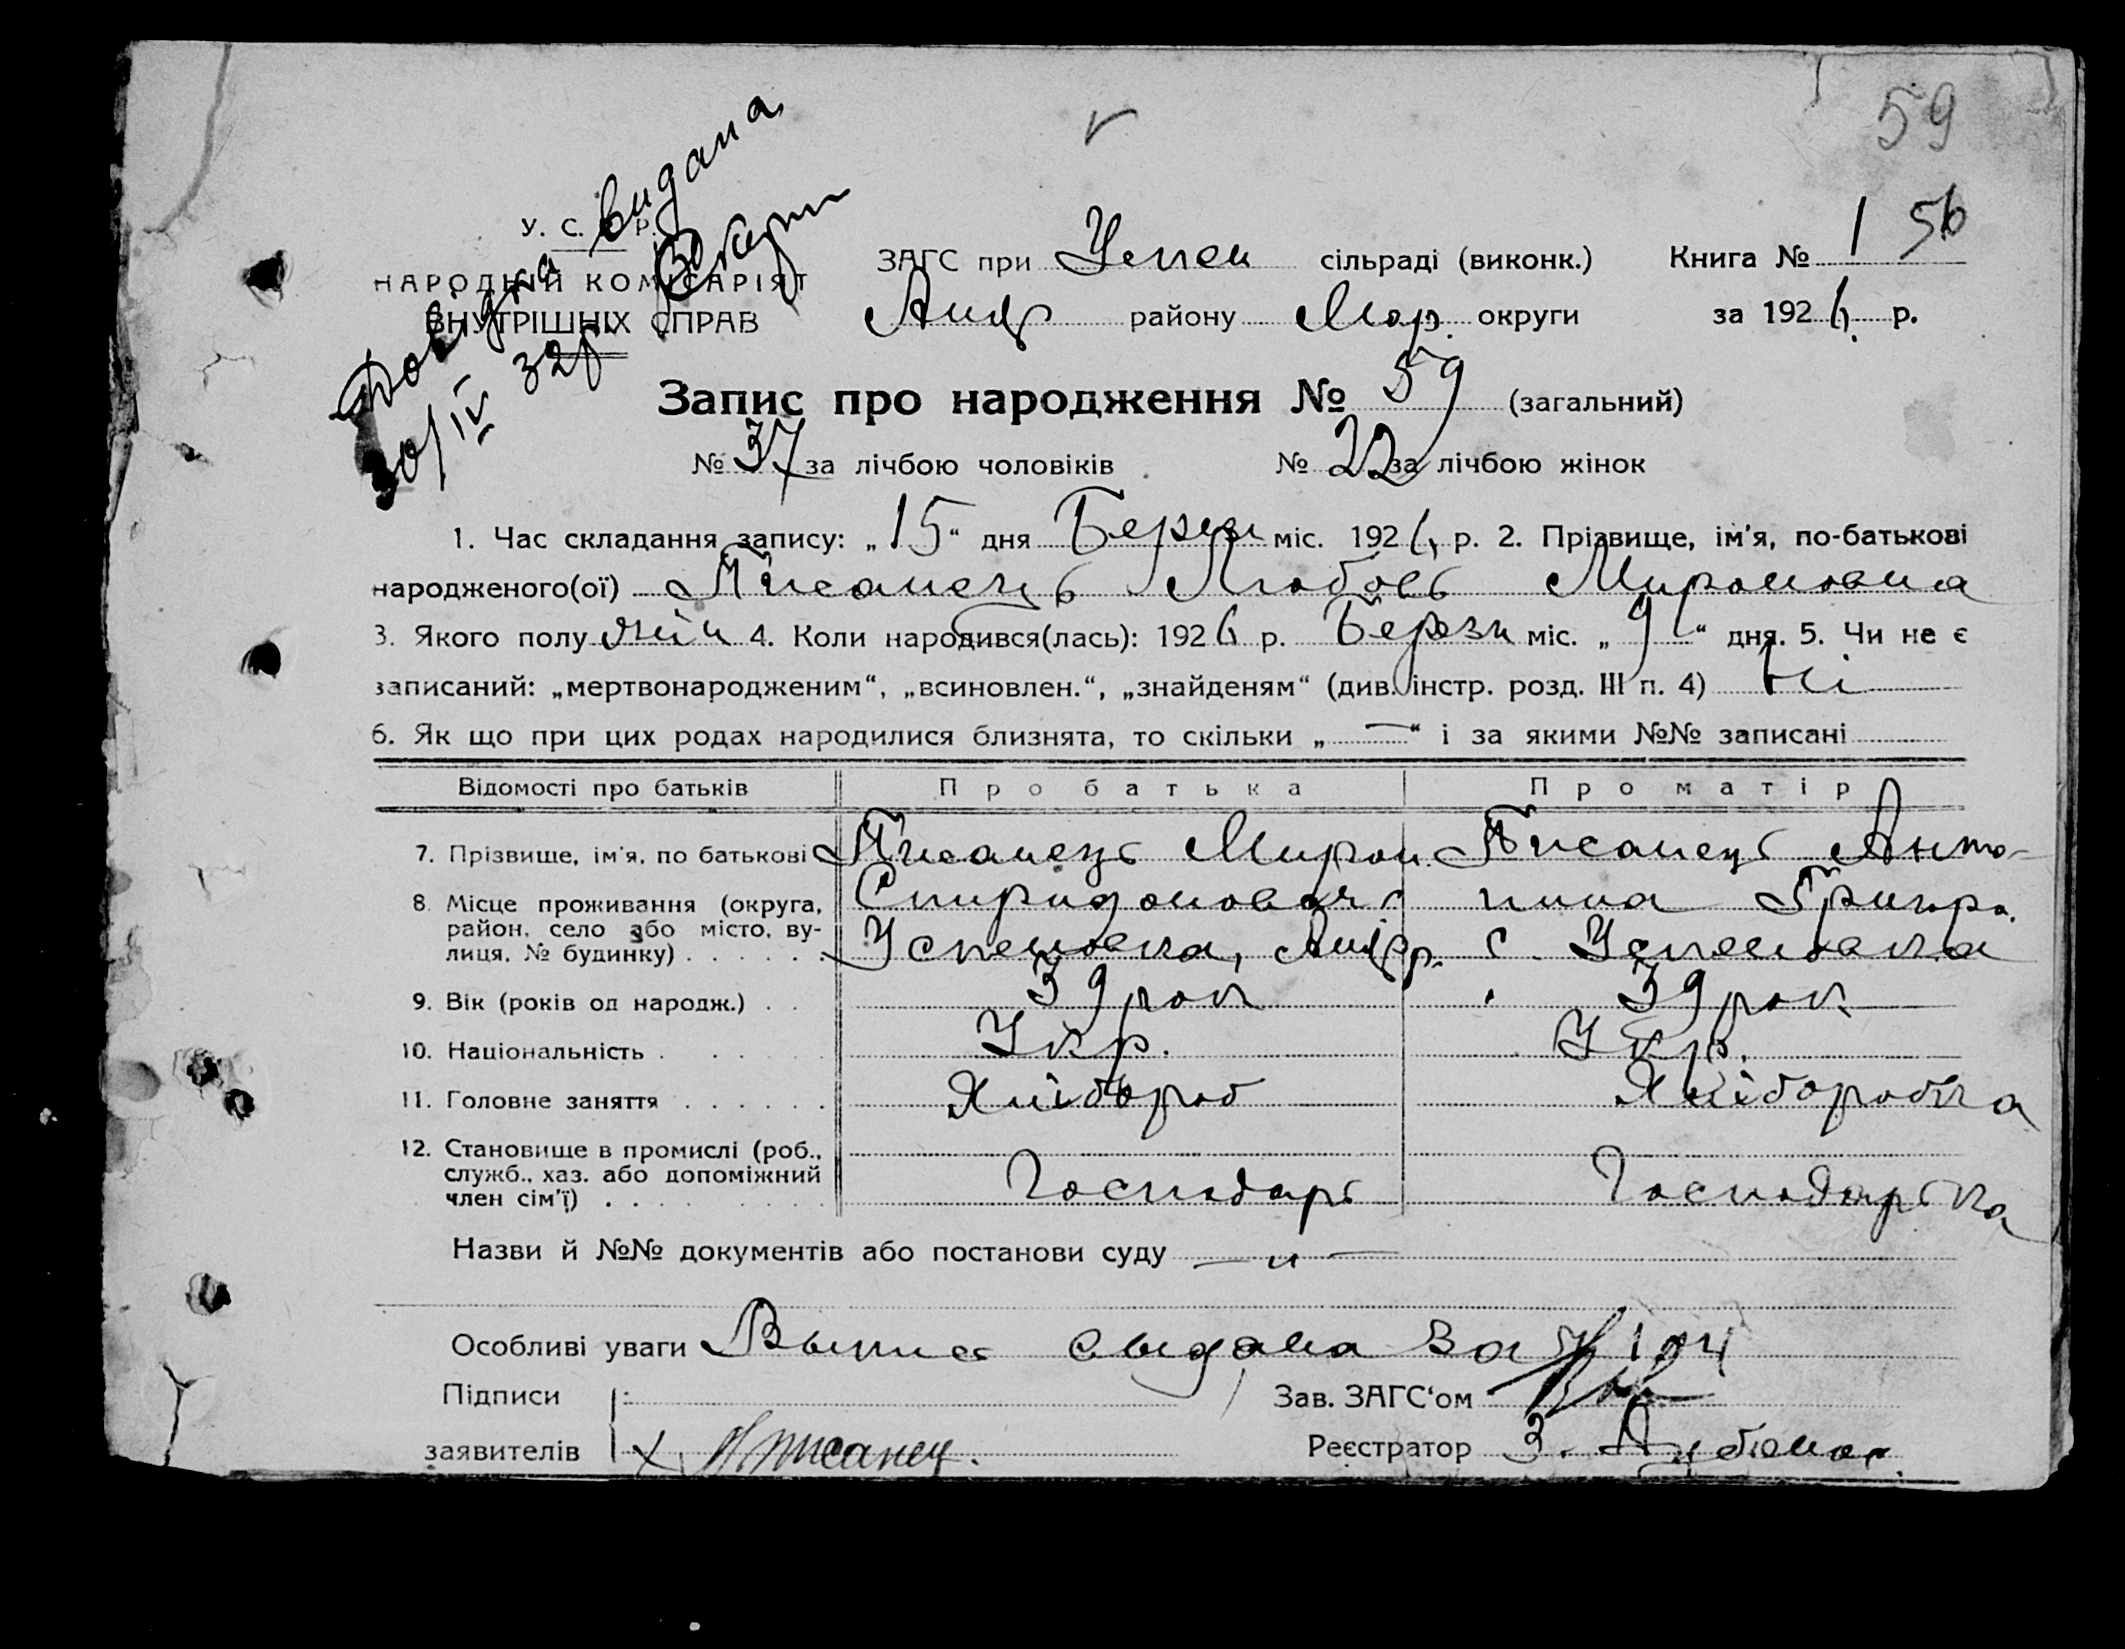 59
Довідка видана
30/IV 32р.
У. С. Р. Р.
НАРОДНІЙ КОМІСАРІЯТ
ВНУТРІШНІХ СПРАВ
ЗАГС при Успен сільраді (виконк.) Книга № 1 56
Андр району Мар. округи за 1926 р.
Запис про народження № 59 (загальний)
№ 37 за лічбою чоловіків № 22 за лічбою жінок
1. Час складання запису: „15“ дня Березн міс. 1926 р. 2. Прізвище, ім'я, по-батькові
народженого(ої) Писанець Любовь Мироновна
3. Якого полу жін 4. Коли народився(лась): 1926 р. Березн міс. „9“ дня. 5. Чи не є
записаний: „мертвонародженим“, „всиновлен.“, „знайденям“ (див. інстр. розд. III п. 4) Ні
6. Як що при цих родах народилися близнята, то скільки „—“ і за якими №№ записані
Відомості про батьків Про батька Про матір
7. Прізвище, ім'я, по батькові Писанець Мирон Писанець Анто-
8. Місце проживання (округа, Спиридонович нина Григор.
район, село або місто, ву-
лиця, № будинку) Успеновка, Андр. с. Успеновка
9. Вік (років од народж.) 39 рок 39 рок
10. Національність Укр. Укр.
11. Головне заняття Хліброб Хліборобка
12. Становище в промислі (роб.,
служб., хаз. або допоміжний Господарь Господарька
член сім'ї)
Назви й №№ документів або постанови суду — „ —
Особливі уваги Выпись выдана За №
Підписи Зав. ЗАГС'ом
заявителів Х Писанец. Реєстратор З.